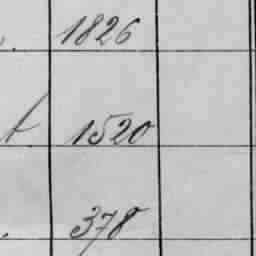 1826
t 1520
378